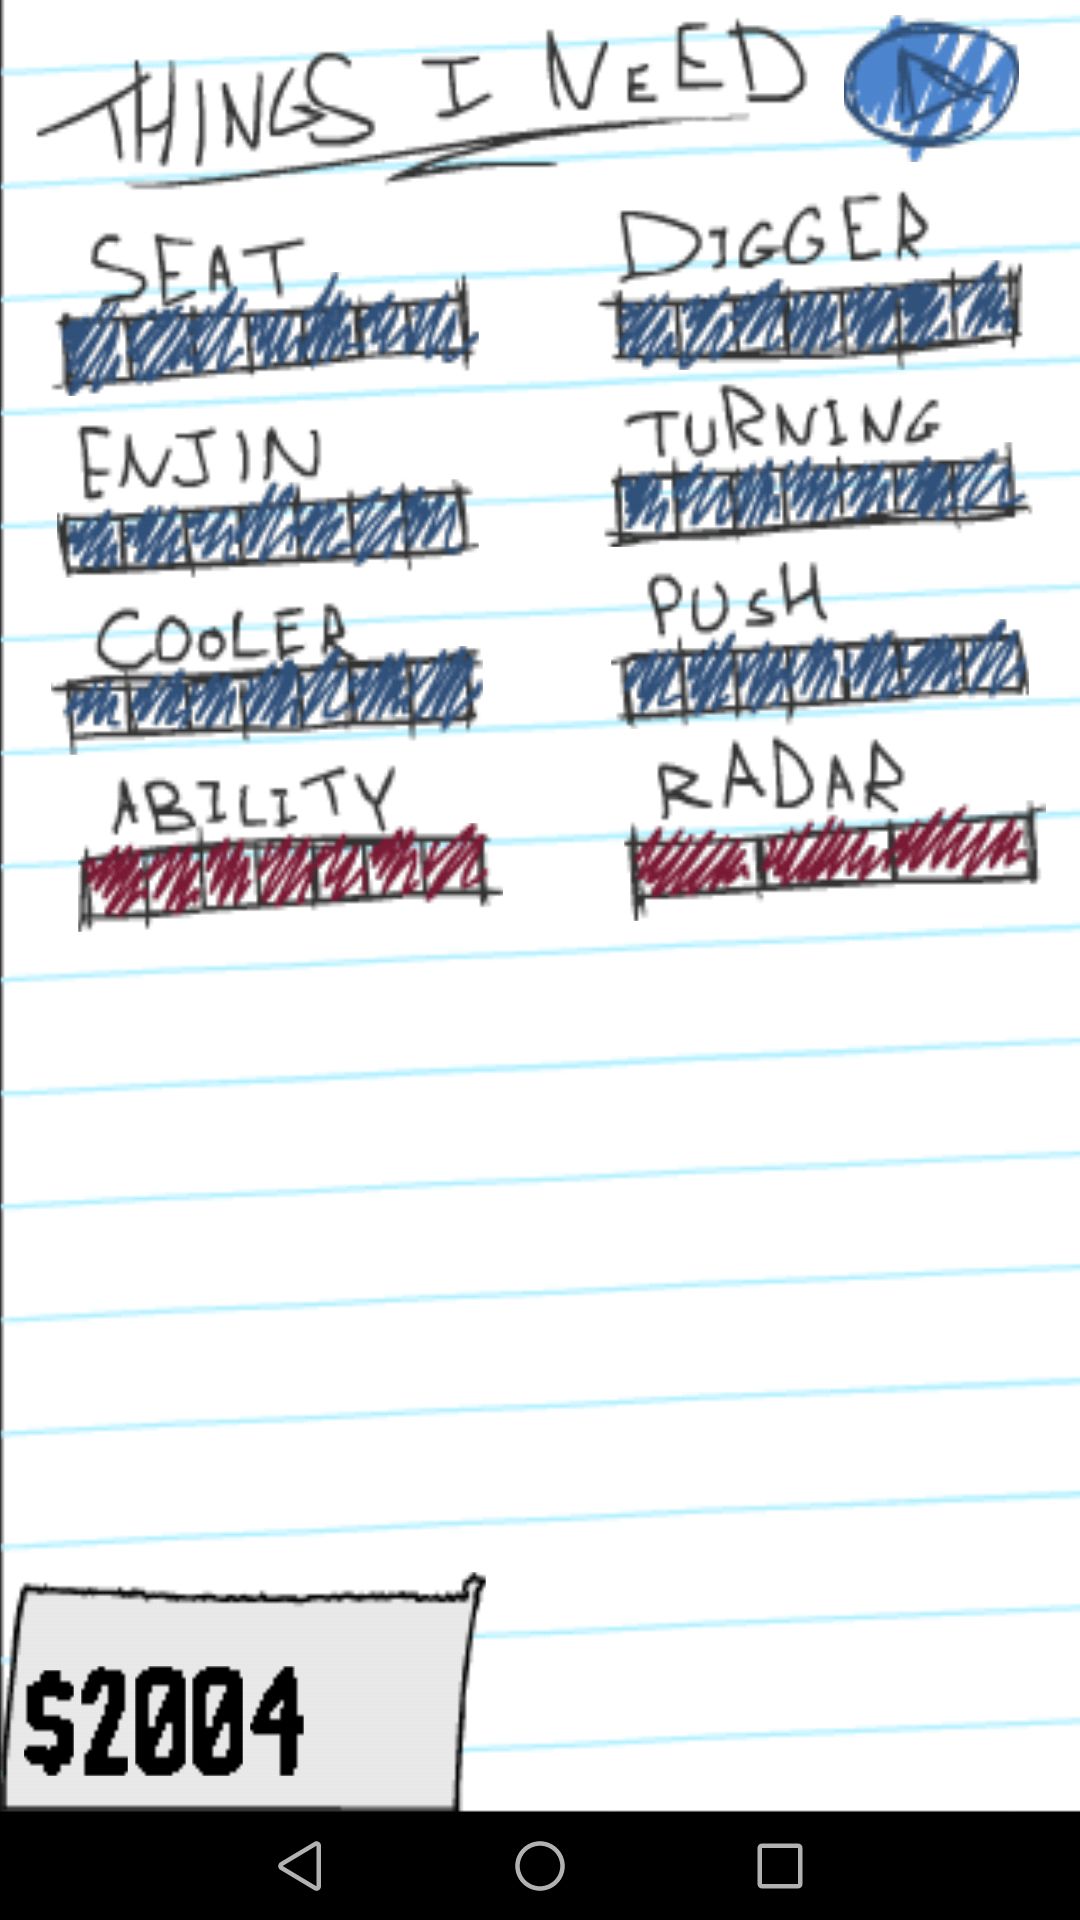 THINGS I NEED
SEAT
DIGGER
ENJIN
TURNING
COOLER
PUSH
ABILITY
RADAR
$2004